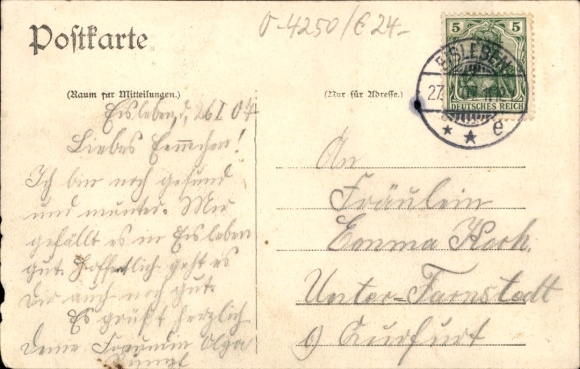 Postkarte
O-4250/€24-
5 5
DEUTSCHES REICH
EISLEBEN
27
* * e
(Raum zur Mitteilungen.)
(Nur für Adresse.)
Eisleben, 26 I 07
Liebes Emmchen!
Ich bin noch gesund
und munter. Mir
gefällt es in Eisleben
gut. Hoffentlich geht es
Dir auch noch gut.
Es grüßt herzlich
Deine Freundin Olga
An
Fräulein
Emma Koch.
Unter=Farnstädt
b) Querfurt